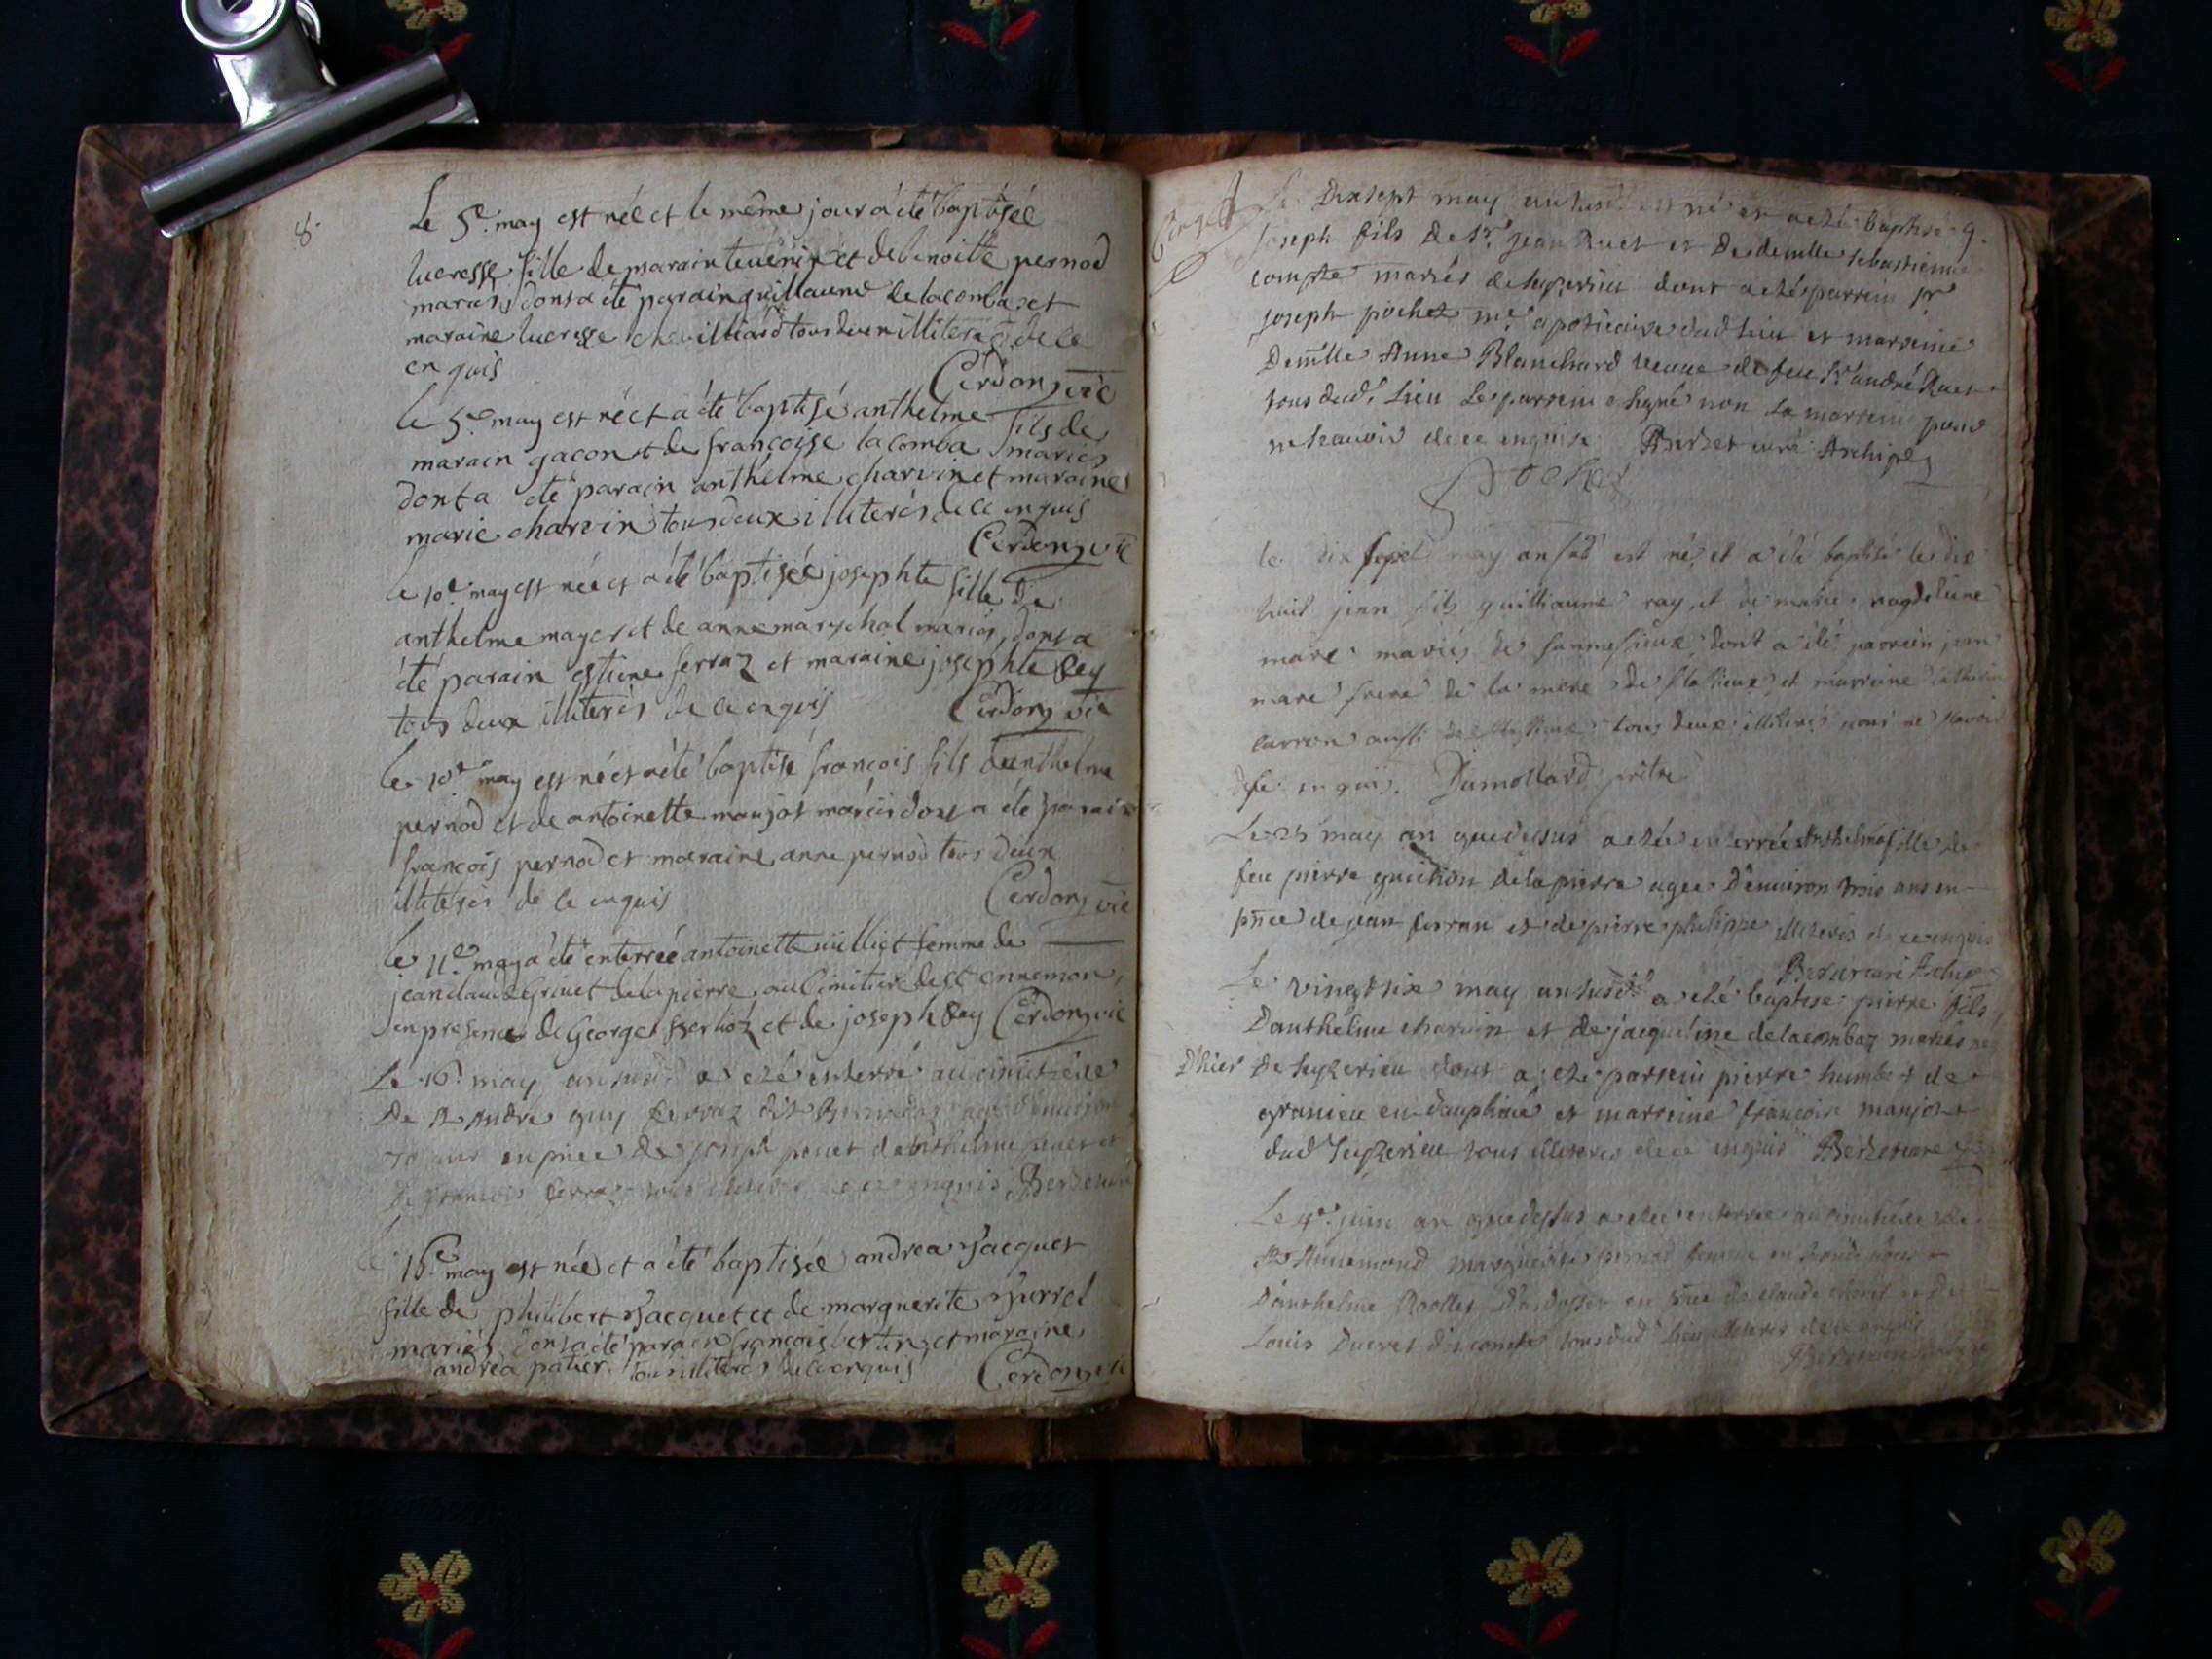 8.
Le 5e. may est néé et le même jour a été baptiséé
lucresse fille de marain teuenin et de benoitte pernod
mariés dont a été parain guillaume delacomba et
maraine lucresse chevilliard tous deux illiterés de ce
enquis
Cerdon vic
le 5e may est né et a été baptisé anthelme fils de
marain gacon et de françoise lacomba mariés
dont a été parain anthelme charvin et maraine
marie charvin tous deux illiterés de ce enquis
Cerdon vic
le 10e. may est néé et a été baptiséé josephte fille de
anthelme mayer et de anne marychal mariés, dont a
été parain estiene ferraz et maraine josephte Rey
tous deux illiterés de ce enquis Cerdon vic
le 10e may est né et a été baptisé françois fils d'anthelme
pernod et de antoinette manjot mariés dont a été parain
françois pernod et maraine anne pernod tous deux
illiterés de ce enquis Cerdon vic
le 11e. may a été enterréé antoinette uilliet femme de
jean claude Grinet de la pierre, au cimitier de st ennemon,
en presence de George berlioz et de joseph Rey Cerdon vic
Le 16. may an susd a eté enterré au cimitiére
De St André guy ferraz dit agé d'environ
70 ans en pnce de joseph et danthelme et
De francois ferraz tous illiterés de ce enquis Berzet curé
le 16e may est néé et a été baptiséé andrea Jacquet
fille de philibert Jacquet et de marguerite Jurrel
mariés dont a été parain françois bertin et maraine
andrea patier. tous illiterés de ce enquis Cerdon vic
Le Dixsept may an susd. est né et a eté baptisé 9.
Joseph fils de Sr. Jean Ruet et De demlle sebastienne
compte mariés de Seyzerieu dont a eté parrein Sr
joseph pochet me. apoticaire dud lieu et marreine
Demlle Anne Blanchard veuve de feu Sr andré Ruet
tous dud. lieu Le parrein a signé non la marreine pour
ne scavoir de ce enquise Berzet curé Archip
Pochet
le dix sept may an susd est né, et a été baptisé le dix
huit jean fils guilliaume ray, et de marie magdeleine
mare mariés de , dont a été parrein jean
mare frere de la mere de et marreine
carron aussi de tous deux illiterés pour ne scavoir
de ce enquis. Dumollard prêtre
Le 25 may an que dessus a eté enterrée Anthelma fille de
feu pierre guition de la pierre agée D'environ trois ans en
pnce de jean ferran et de pierre philippe illiterés de ce enquis
Berzet curé Archip
Le vingtsix may an susd a eté baptisé pierre fils
Danthelme charvin et de jacqueline delacombaz mariés né
D'hier De Seyzerieu dont a eté parrein pierre humbert de
granieu en dauphiné et marreine francoise manjot
dud Seyzerieu tous illiterés de ce enquis Berzet curé
Le 4e. juin an que dessus a eté enterrée au cimitiére de
St Annemond marguerite pernod femme en
Danthelme Rollet en pnce de claude et de
Louis Ducret dit comte tous dud lieu illiterés de ce enquis
Berzet curé